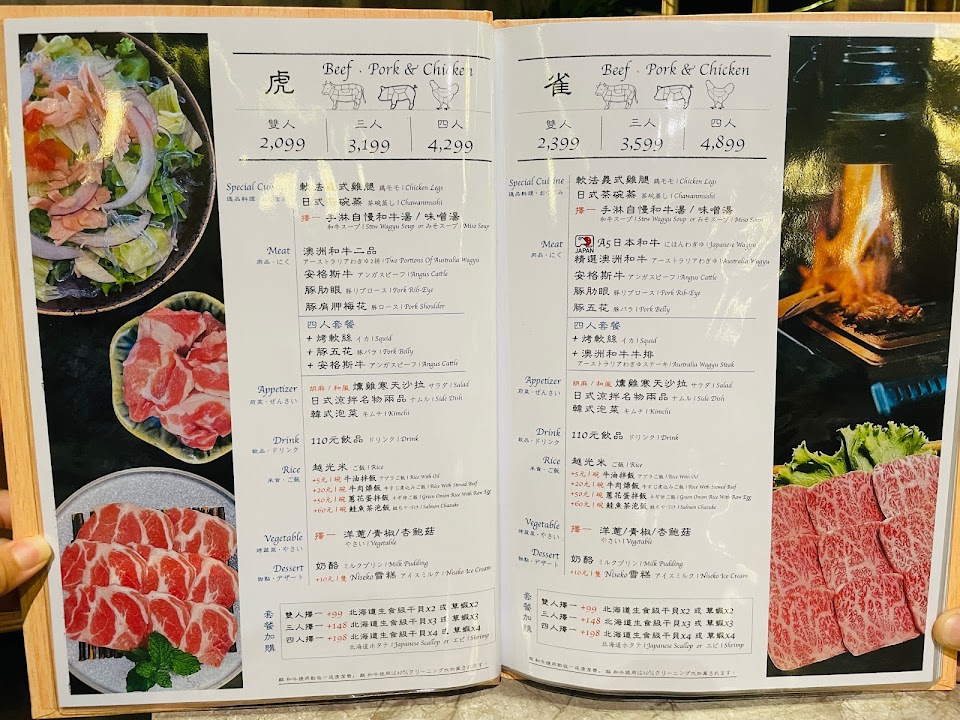 虎
Beef . Pork & Chicken
雙人 三人 四人
2,099 3,199 4,299
Special Cuisine 軟法義式雞腿 鶏モモ | Chicken Legs
逸品料理・おつまみ 日式茶碗蒸 茶碗蒸し | Chawanmushi
擇一 手淋自慢和牛湯 / 味噌湯
和牛スープ | Stew Wagyu Soup or みそスープ | Miso Soup
Meat 澳洲和牛二品
肉品・にく アーストラリアわぎゆ2杯 | Two Portions Of Australia Wagyu
安格斯牛 アンガスビーフ | Angus Cattle
豚肋眼 豚リブロース | Pork Rib-Eye
豚肩胛梅花 豚ロース | Pork Shoulder
四人套餐
+ 烤軟絲 イカ | Squid
+ 豚五花 豚バラ | Pork Belly
+ 安格斯牛 アンガスビーフ | Angus Cattle
Appetizer 胡麻 / 和風 燻雞寒天沙拉 サラダ | Salad
前菜・ぜんさい 日式涼拌名物兩品 ナムル | Side Dish
韓式泡菜 キムチ | Kimchi
Drink 110元飲品 ドリンク | Drink
飲品・ドリンク
Rice 越光米 ご飯 | Rice
米食・ご飯 +5元 | 碗 牛油拌飯 アブラご飯 | Rice With Oil
+20元 | 碗 牛肉燥飯 牛すじ煮込みご飯 | Rice With Stewed Beef
+50元 | 碗 蔥花蛋拌飯 ネギ卵ご飯 | Green Onion Rice With Raw Egg
+60元 | 碗 鮭魚茶泡飯 鮭ちゃづけ | Salmon Chazuke
Vegetable 擇一 洋蔥/青椒/杏鮑菇
烤蔬菜・やさい やさい | Vegetable
Dessert 奶酪 ミルクプリン | Milk Pudding
甜點・デザート +10元 | 隻 Niseko雪糕 アイスミルク | Niseko Ice Cream
套餐加購
雙人擇一 +99 北海道生食級干貝x2 或 草蝦x2
三人擇一 +148 北海道生食級干貝x3 或 草蝦x3
四人擇一 +198 北海道生食級干貝x4 或 草蝦x4
北海道ホタテ | Japanese Scallop or エビ | Shrimp
雀
Beef . Pork & Chicken
雙人 三人 四人
2,399 3,599 4,899
Special Cuisine 軟法義式雞腿 鶏モモ | Chicken Legs
逸品料理・おつまみ 日式茶碗蒸 茶碗蒸し | Chawanmushi
擇一 手淋自慢和牛湯 / 味噌湯
和牛スープ | Stew Wagyu Soup or みそスープ | Miso Soup
Meat JAPAN A5日本和牛 にほんわぎゆ | Japanese Wagyu
肉品・にく 精選澳洲和牛 アーストラリアわぎゆ | Australia Wagyu
安格斯牛 アンガスビーフ | Angus Cattle
豚肋眼 豚リブロース | Pork Rib-Eye
豚五花 豚バラ | Pork Belly
四人套餐
+ 烤軟絲 イカ | Squid
+ 澳洲和牛牛排
アーストラリアわぎゆステーキ | Australia Wagyu Steak
Appetizer 胡麻 / 和風 燻雞寒天沙拉 サラダ | Salad
前菜・ぜんさい 日式涼拌名物兩品 ナムル | Side Dish
韓式泡菜 キムチ | Kimchi
Drink 110元飲品 ドリンク | Drink
飲品・ドリンク
Rice 越光米 ご飯 | Rice
米食・ご飯 +5元 | 碗 牛油拌飯 アブラご飯 | Rice With Oil
+20元 | 碗 牛肉燥飯 牛すじ煮込みご飯 | Rice With Stewed Beef
+50元 | 碗 蔥花蛋拌飯 ネギ卵ご飯 | Green Onion Rice With Raw Egg
+60元 | 碗 鮭魚茶泡飯 鮭ちゃづけ | Salmon Chazuke
Vegetable 擇一 洋蔥/青椒/杏鮑菇
烤蔬菜・やさい やさい | Vegetable
Dessert 奶酪 ミルクプリン | Milk Pudding
甜點・デザート +10元 | 隻 Niseko雪糕 アイスミルク | Niseko Ice Cream
套餐加購
雙人擇一 +99 北海道生食級干貝x2 或 草蝦x2
三人擇一 +148 北海道生食級干貝x3 或 草蝦x3
四人擇一 +198 北海道生食級干貝x4 或 草蝦x4
北海道ホタテ | Japanese Scallop or エビ | Shrimp